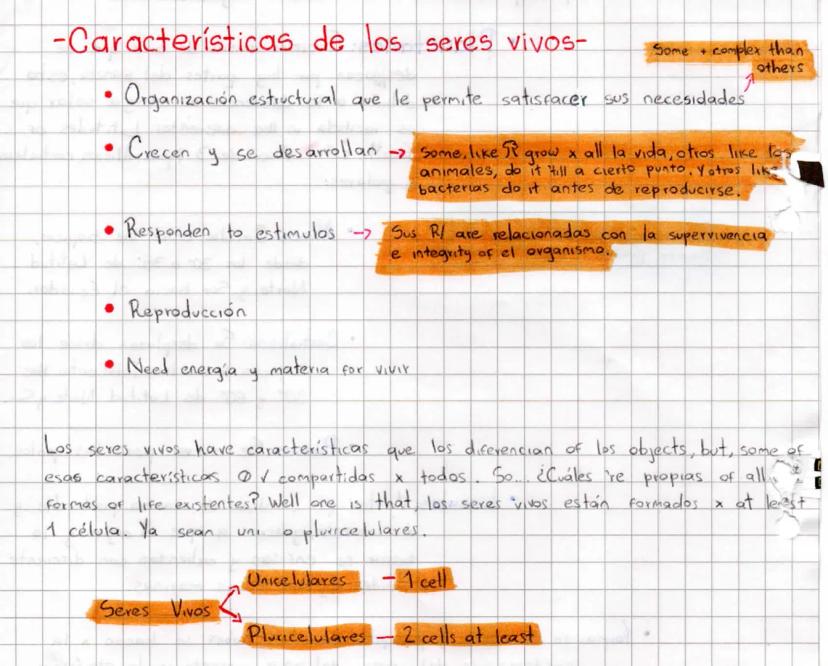 -Características de los seres vivos-
Some + complex than
others
• Organización estructural que le permite satisfacer sus necesidades
• Crecen y se desarrollan → Some, like grow x all la vida, otros like los
animales, do it till a cierto punto. Y otros like
bacterias do it antes de reproducirse.
• Responden to estimulos → Sus R/ are relacionadas con la supervivencia
e integrity of el organismo.
• Reproducción
• Need energía y materia for vivir
Los seres vivos have características que los diferencian of los objects, but, some of
esas características √ compartidas x todos. So... ¿Cuáles 're propias of all
formas of life existentes? Well one is that, los seres vivos están formados x at least
1 célula. Ya sean uni o pluricelulares.
Unicelulares - 1 cell
Seres Vivos
Pluricelulares - 2 cells at least